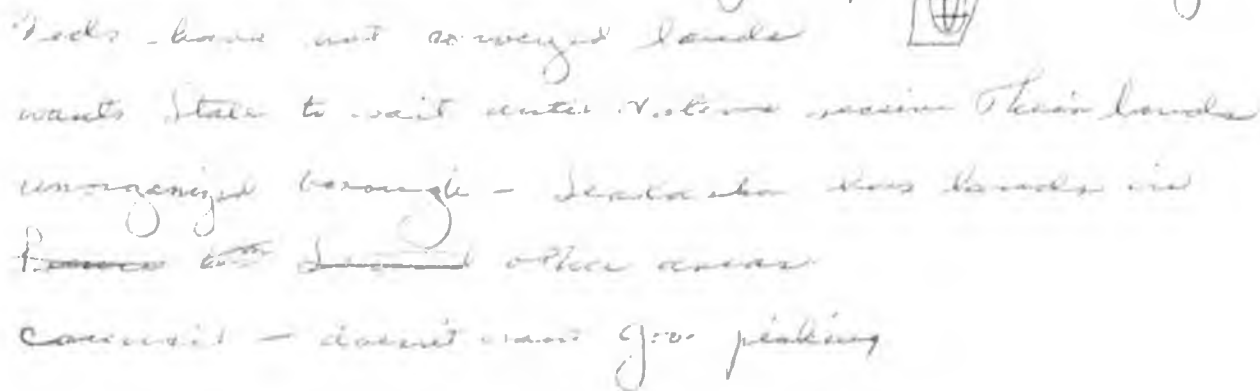 Feds - have not conveyed lands
wants State to wait until receive Their lands
unorganized borough - Sealaska has lands in
other areas
council - doesn't want Gov picking